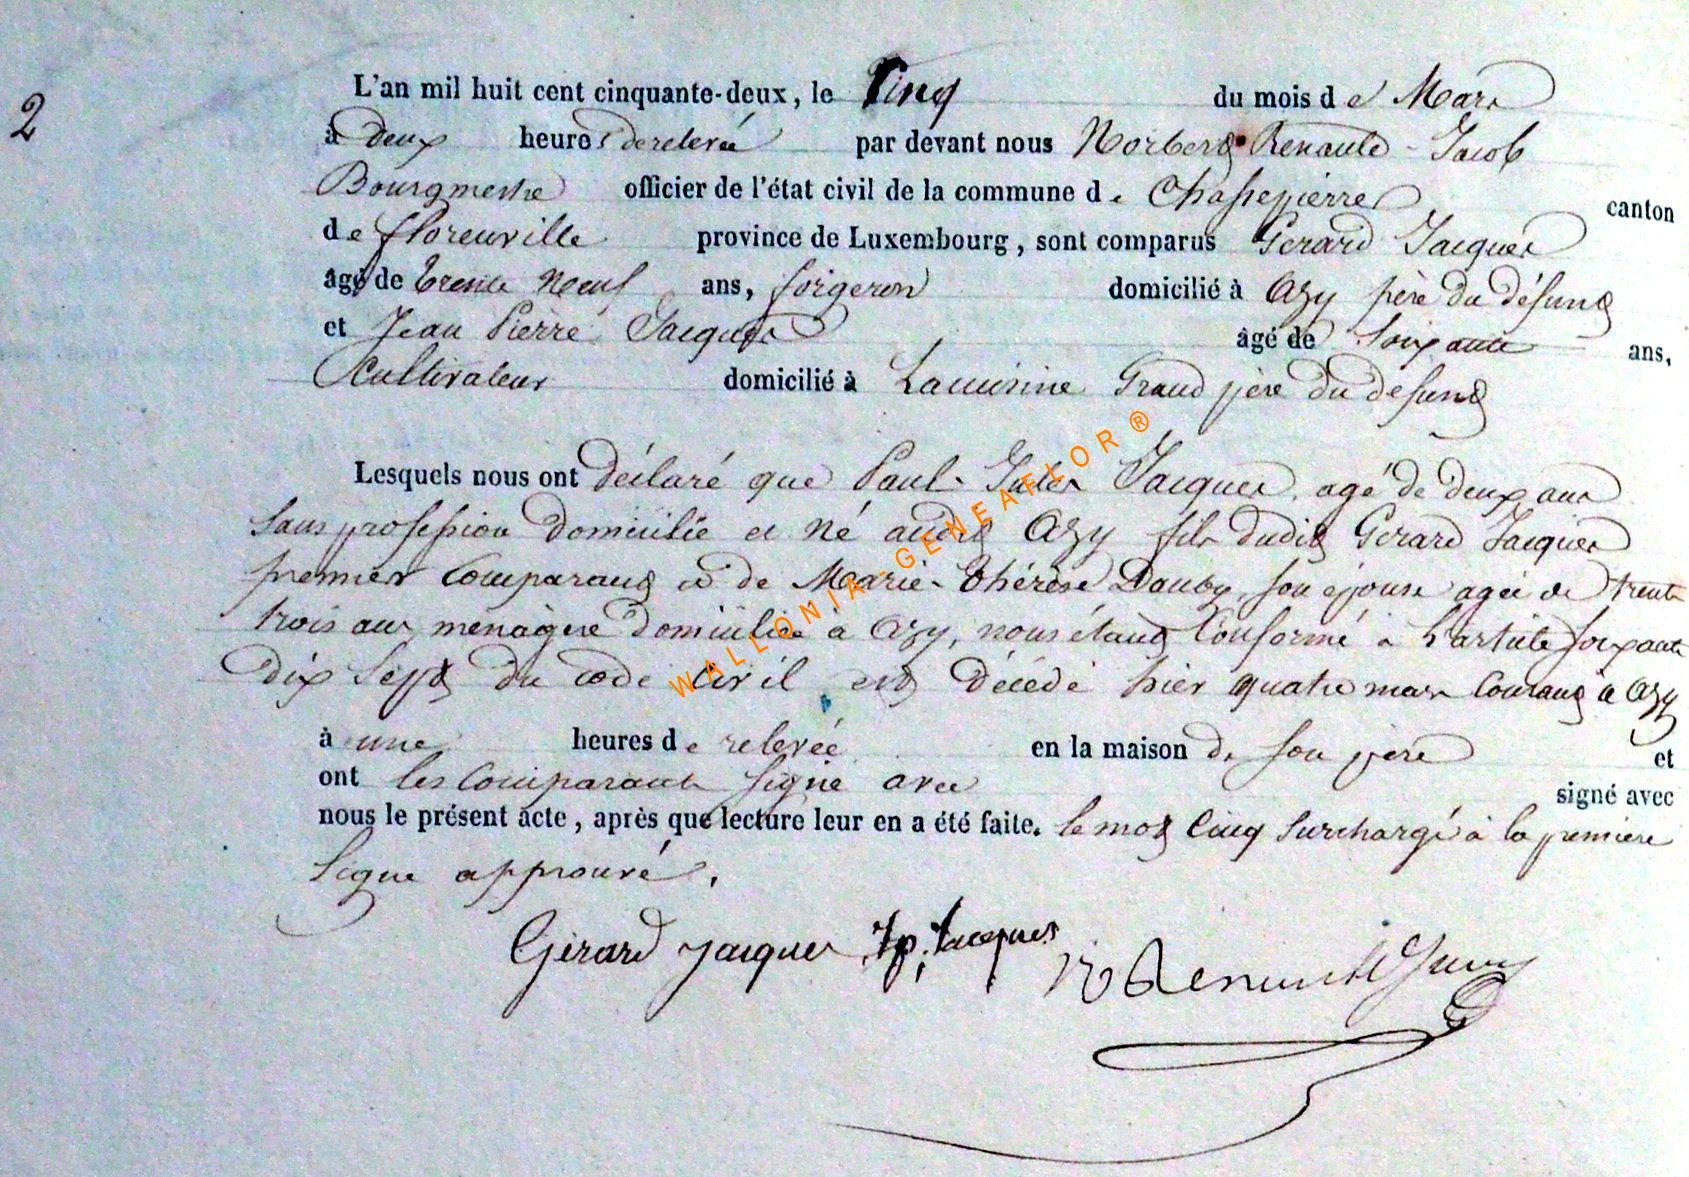 2
L'an mil huit cent cinquante-deux, le Cinq du mois de Mars
à deux heures de relevée par devant nous Norbert Renauld - Jacob
Bourgmestre officier de l'état civil de la commune de Chassepierre canton
de florenville province de Luxembourg, sont comparus Gerard Jacques
âgé de trente neuf ans, forgeron domicilié à Azy père du défunt
et Jean Pierre Jacques âgé de soixante ans,
Cultivateur domicilié à Lacuisine Grand père du defunt
Lesquels nous ont déclaré que Paul-Jules Jacques, agé de deux ans
sans profession domicilié et né audit Azy fils dudit Gerard Jacques
premier Comparant et de Marie-Thérèse Dauby, son épouse agée de trente
trois ans, menagère domiciliée à Azy, nous étant Conformé à l'article soixante
dix sept du code civil est décédé hier quatre mars Courant à Azy
à une heures de relevée en la maison de son père et
ont les Comparants signé avec signé avec
nous le présent acte, après que lecture leur en a été faite. le mot Cinq surchargé à la premiere
ligne approuvé.
Gérard Jacques Jp. Jacques N Renauld Jacob
WALLONIA-GENEAFLOR®